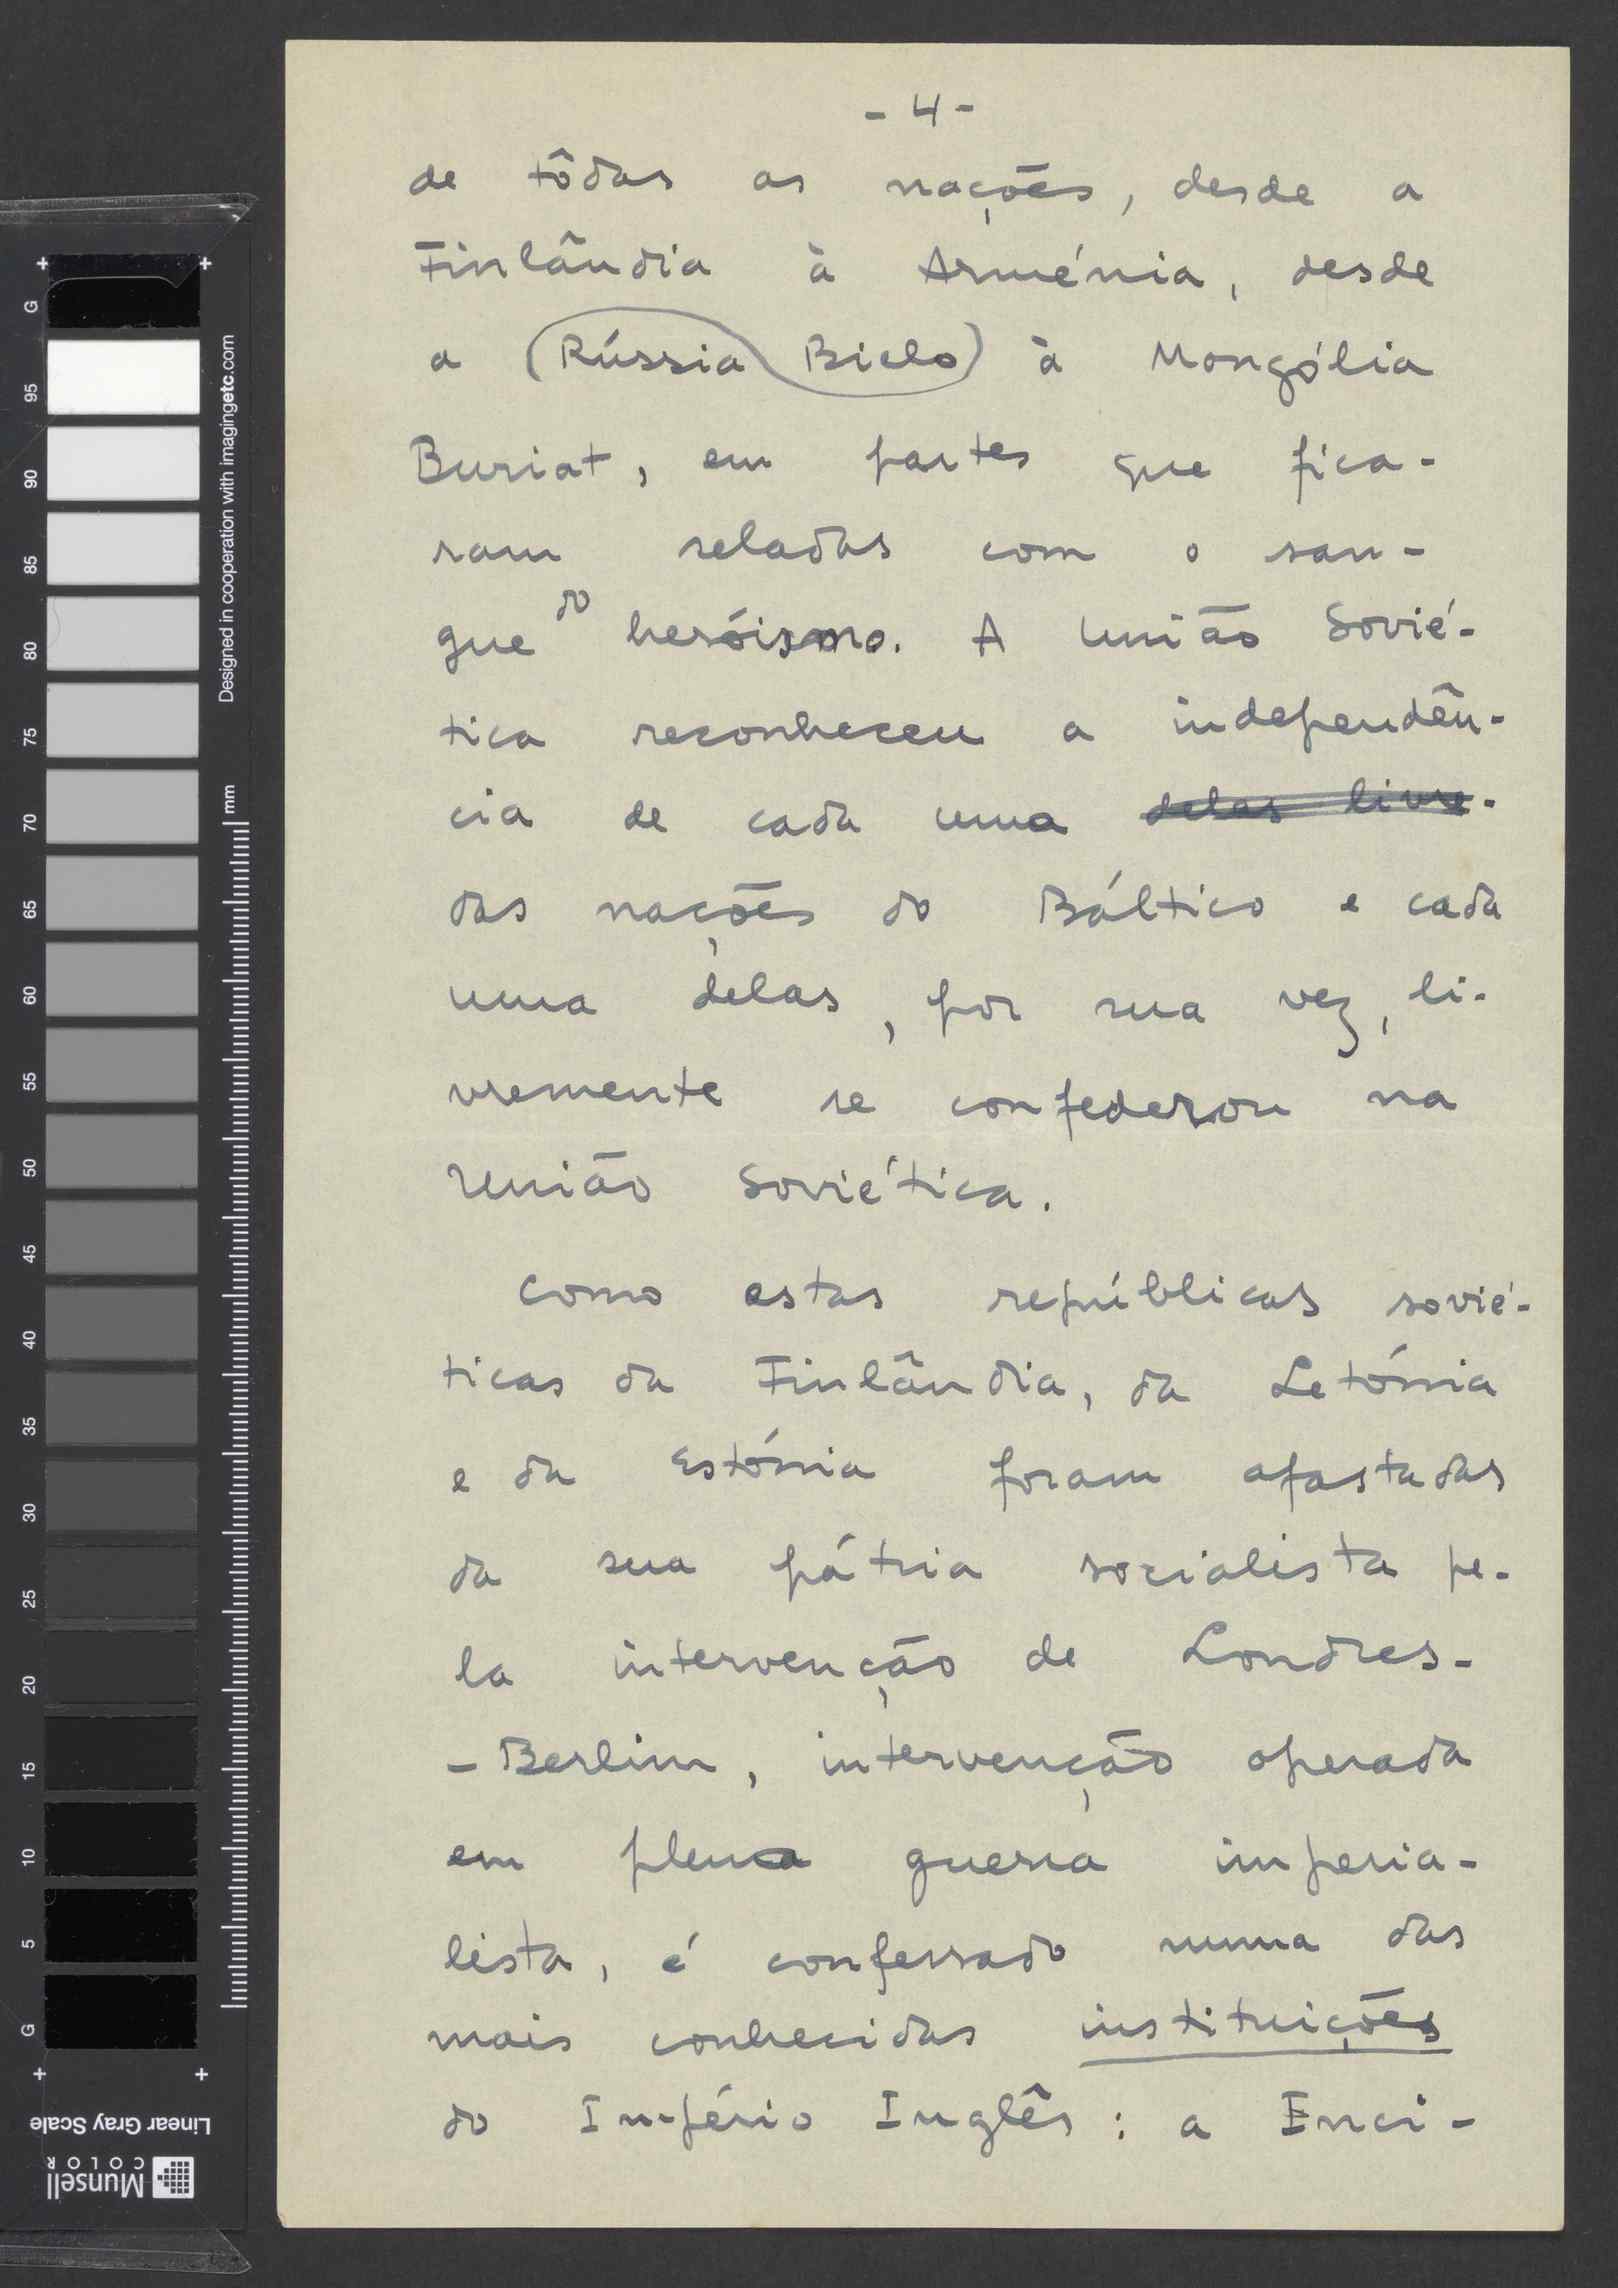 - 4 -
de tôdas as nações, desde a
Finlândia à Arménia, desde
a Rússia Bielo à Mongólia
Buriat, em partes que fica-
ram seladas com o san-
gue do heróismo. A União Sovié-
tica reconheceu a independên-
cia de cada uma delas livre-
das nações do Báltico e cada
uma delas, por sua vez, li-
vremente se confederou na
União Soviética.
Como estas repúblicas sovié-
ticas da Finlândia, da Letónia
e da Estónia foram afastadas
da sua pátria socialista pe-
la intervenção de Londres-
- Berlim, intervenção operada
em plena guerra imperia-
lista, é confessado numa das
mais conhecidas instituições
do Império Inglês: a Enci-
G
95
90
85
80
75
70
65
60
55
50
45
40
35
30
25
20
15
10
5
G
Designed in cooperation with imagingetc.com
mm
Linear Gray Scale
Munsell
COLOR